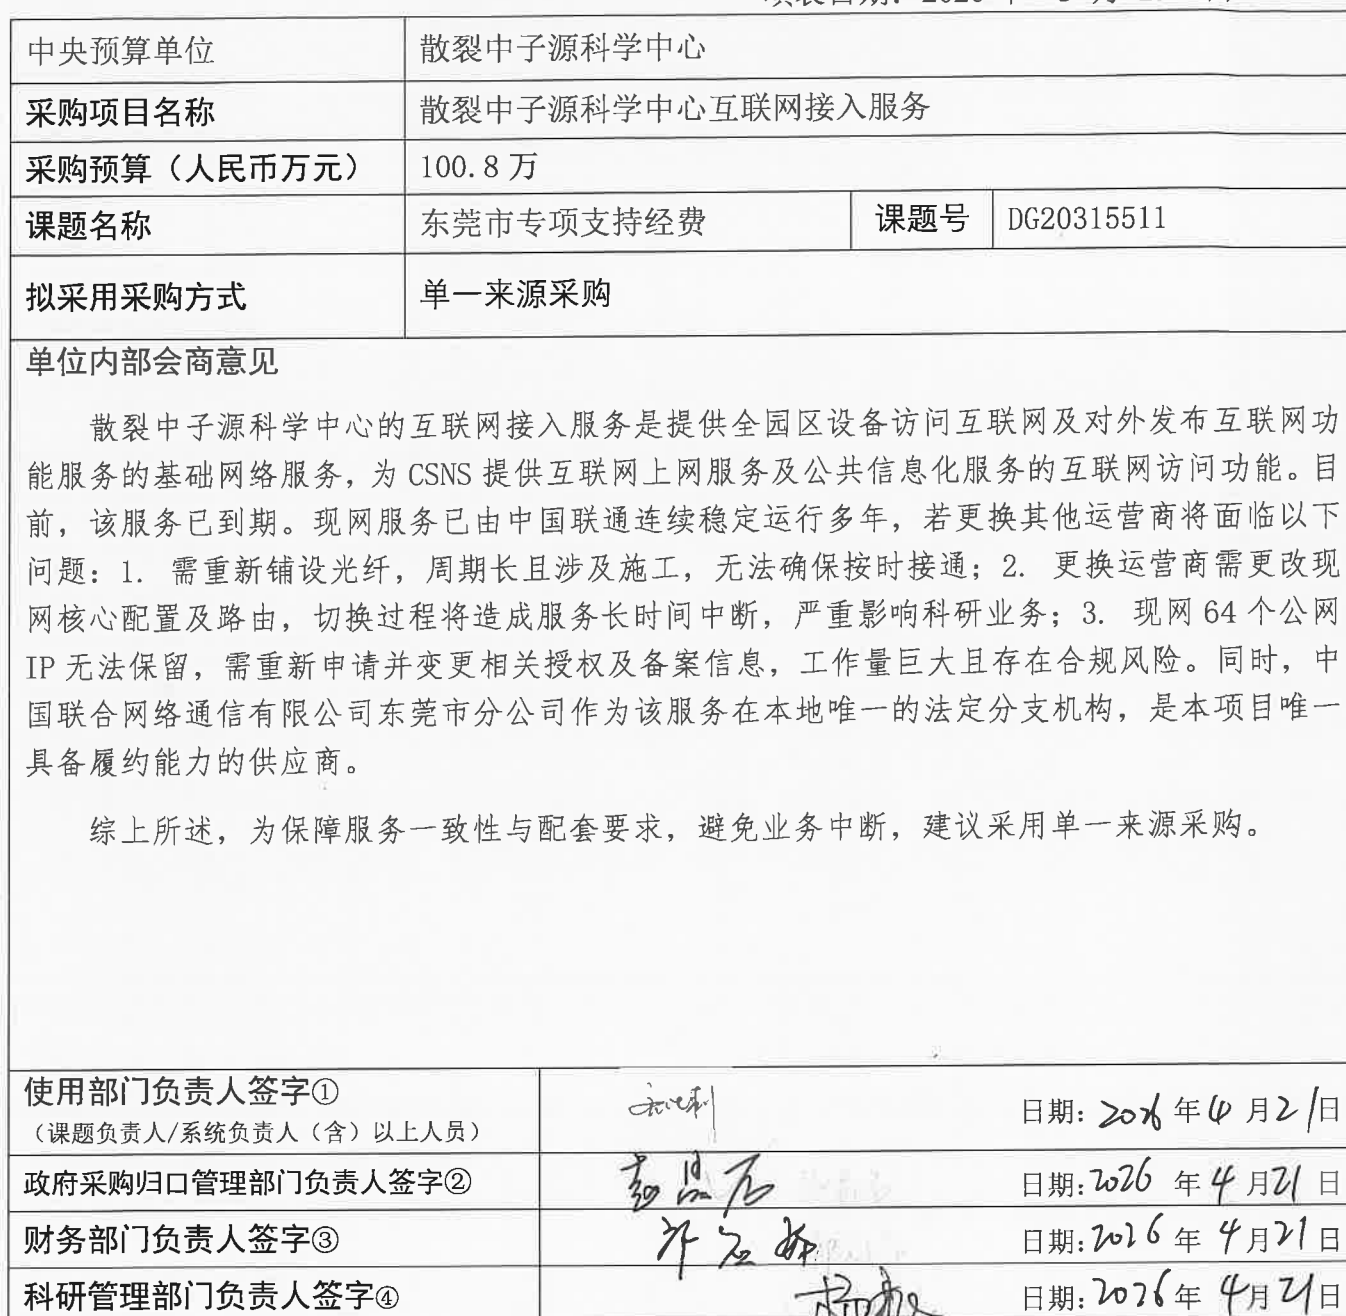 中央预算单位 散裂中子源科学中心
采购项目名称 散裂中子源科学中心互联网接入服务
采购预算（人民币万元） 100.8 万
课题名称 东莞市专项支持经费 课题号 DG20315511
拟采用采购方式 单一来源采购
单位内部会商意见
散裂中子源科学中心的互联网接入服务是提供全园区设备访问互联网及对外发布互联网功
能服务的基础网络服务，为 CSNS 提供互联网上网服务及公共信息化服务的互联网访问功能。目
前，该服务已到期。现网服务已由中国联通连续稳定运行多年，若更换其他运营商将面临以下
问题：1. 需重新铺设光纤，周期长且涉及施工，无法确保按时接通；2. 更换运营商需更改现
网核心配置及路由，切换过程将造成服务长时间中断，严重影响科研业务；3. 现网 64 个公网
IP 无法保留，需重新申请并变更相关授权及备案信息，工作量巨大且存在合规风险。同时，中
国联合网络通信有限公司东莞市分公司作为该服务在本地唯一的法定分支机构，是本项目唯一
具备履约能力的供应商。
综上所述，为保障服务一致性与配套要求，避免业务中断，建议采用单一来源采购。
使用部门负责人签字① 日期: 2026 年 4 月 21 日
（课题负责人/系统负责人（含）以上人员）
政府采购归口管理部门负责人签字② 日期: 2026 年 4 月 21 日
财务部门负责人签字③ 日期: 2026 年 4 月 21 日
科研管理部门负责人签字④ 日期: 2026 年 4 月 21 日